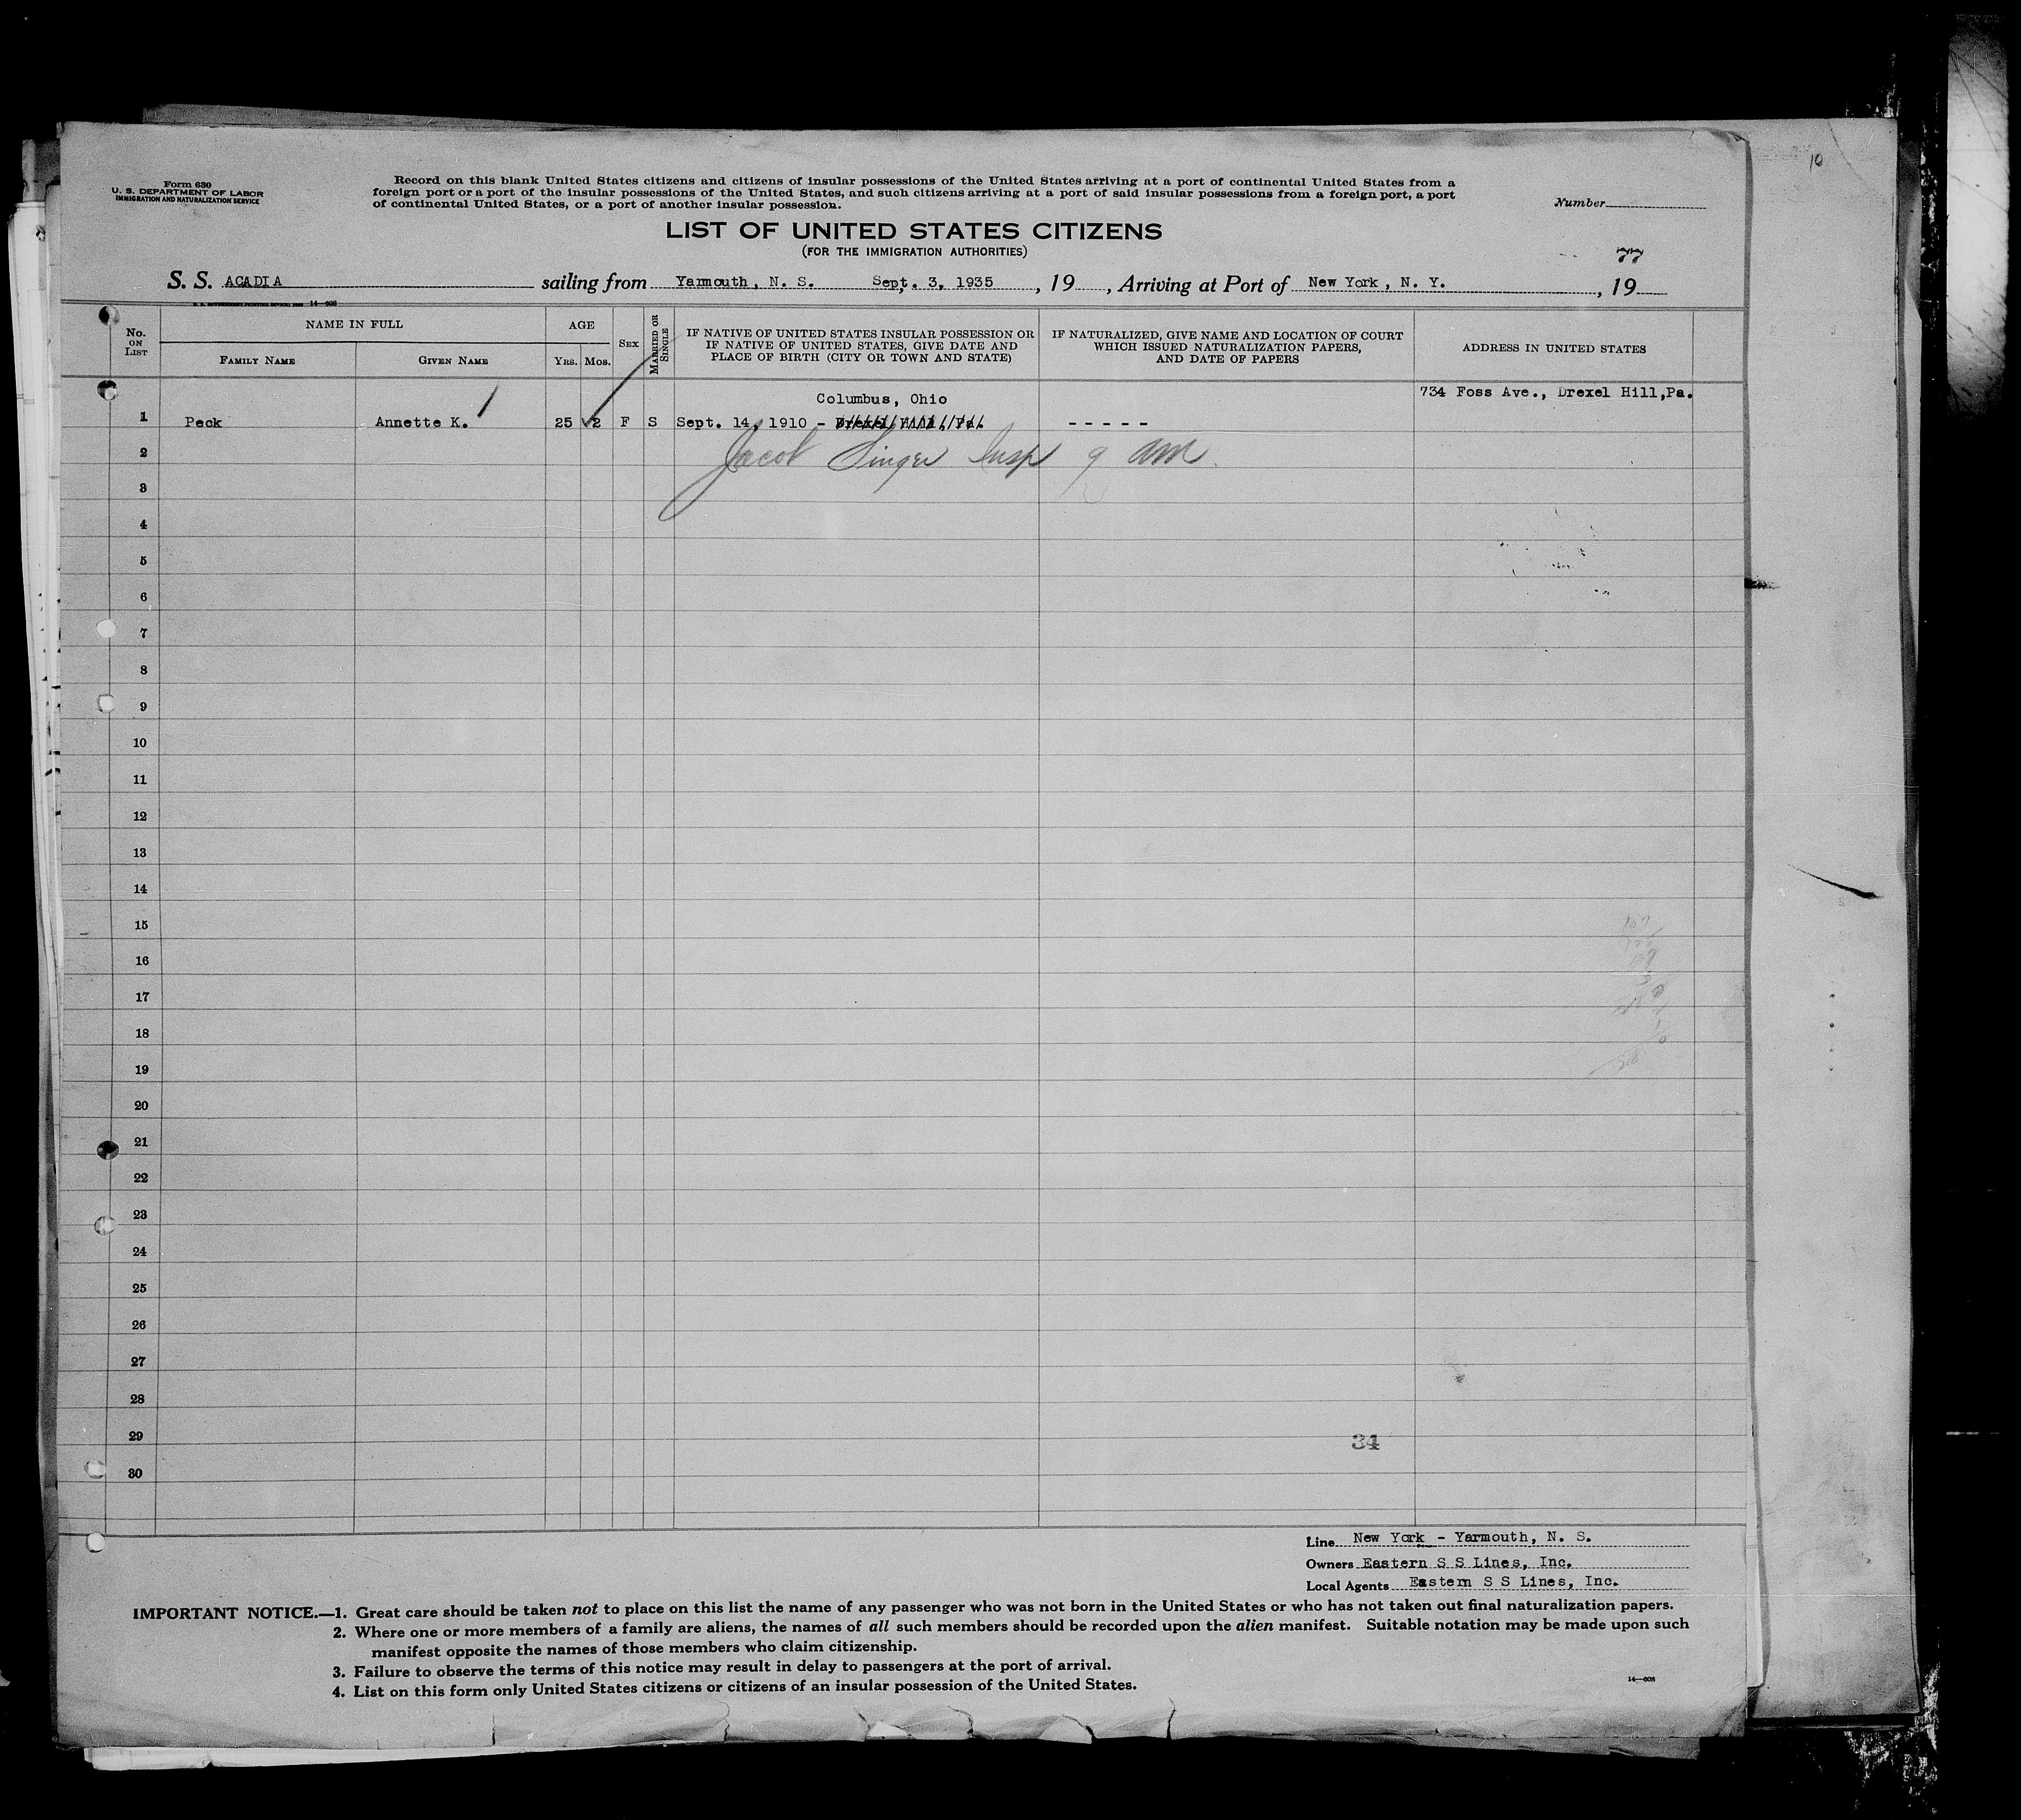 10
Form 630
U. S. DEPARTMENT OF LABOR
IMMIGRATION AND NATURALIZATION SERVICE
Record on this blank United States citizens and citizens of insular possessions of the United States arriving at a port of continental United States from a
foreign port or a port of the insular possessions of the United States, and such citizens arriving at a port of said insular possessions from a foreign port, a port
of continental United States, or a port of another insular possession.
Number
LIST OF UNITED STATES CITIZENS
(FOR THE IMMIGRATION AUTHORITIES)
77
S. S. ACADIA sailing from Yarmouth, N. S. Sept. 3, 1935, 19 , Arriving at Port of New York, N. Y. , 19
14—608
No. ON LIST
NAME IN FULL
FAMILY NAME
GIVEN NAME
AGE
YRS. MOS.
SEX
MARRIED OR SINGLE
IF NATIVE OF UNITED STATES INSULAR POSSESSION OR
IF NATIVE OF UNITED STATES, GIVE DATE AND
PLACE OF BIRTH (CITY OR TOWN AND STATE)
IF NATURALIZED, GIVE NAME AND LOCATION OF COURT
WHICH ISSUED NATURALIZATION PAPERS,
AND DATE OF PAPERS
ADDRESS IN UNITED STATES
Columbus, Ohio 734 Foss Ave., Drexel Hill,Pa.
1 Peck Annette K. 25 2 F S Sept. 14, 1910 - Drexel Hill, Pa. - - - - -
2 Jacob Singer Insp 9 am
3
4
5
6
7
8
9
10
11
12
13
14
15
16
17
18
19
20
21
22
23
24
25
26
27
28
29 34
30
Line New York - Yarmouth, N. S.
Owners Eastern S S Lines, Inc.
Local Agents Eastern S S Lines, Inc.
IMPORTANT NOTICE.—1. Great care should be taken not to place on this list the name of any passenger who was not born in the United States or who has not taken out final naturalization papers.
2. Where one or more members of a family are aliens, the names of all such members should be recorded upon the alien manifest. Suitable notation may be made upon such
manifest opposite the names of those members who claim citizenship.
3. Failure to observe the terms of this notice may result in delay to passengers at the port of arrival.
4. List on this form only United States citizens or citizens of an insular possession of the United States.
14—608